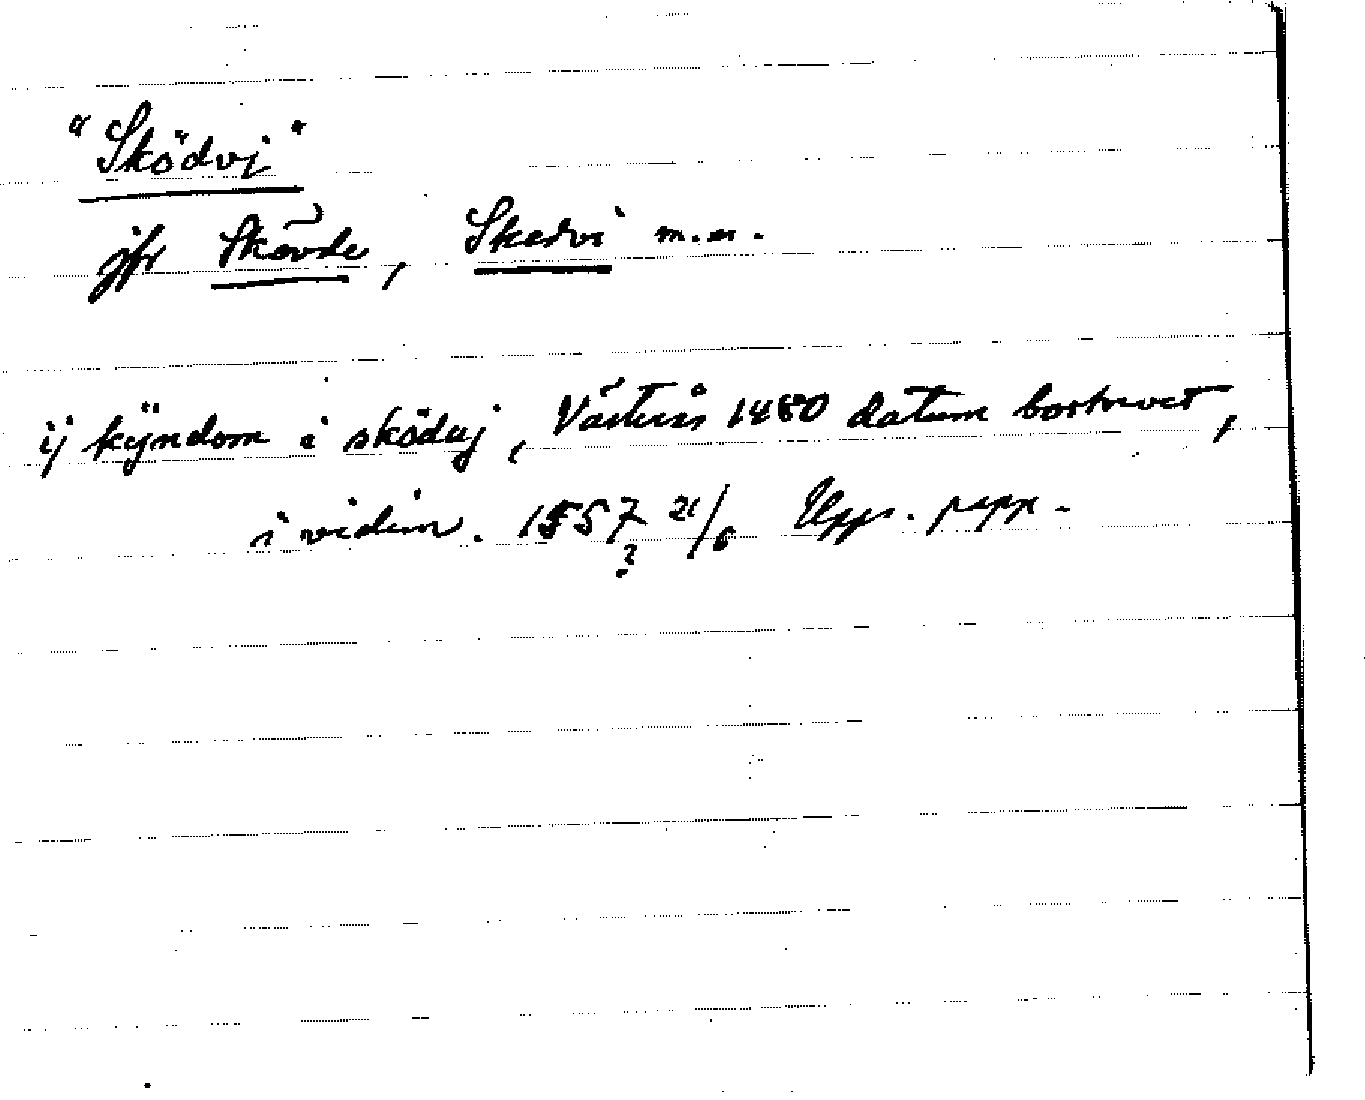 "Sködvj"
jfr Skövde, Skedvi m.m.
ij kÿndom i sködvj, Västerås 1480 datum bortrevet,
i vidim. 1557 21/6 Upps. papp.
?